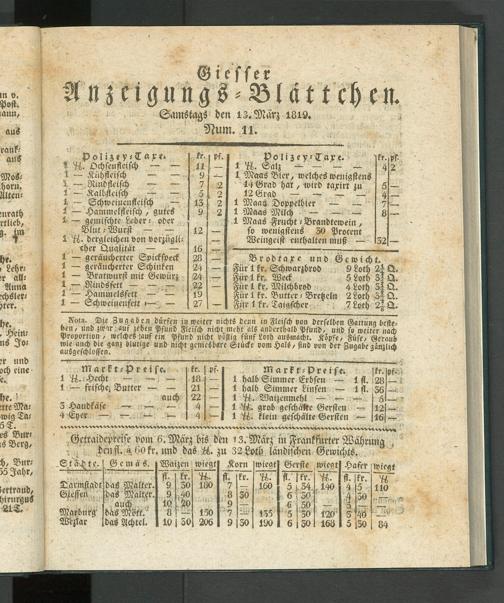 Giesser
Anzeigungs-Blättchen.
Samstags den 13. März 1819.
Num. 11.
Polizey-Taxe. kr. pf.
1 ℔. Ochsenfleisch — — 11 —
1 — Kuhfleisch — — 9 —
1 — Rindfleisch — — 7 2
1 — Kalbfleisch — — 5 2
1 — Schweinenfleisch — 13 2
1 — Hammelsfleisch, gutes 9 2
1 — gemischte Leber- oder
Blut-Wurst — — 12 —
1 ℔. dergleichen von vorzügli-
cher Qualität — — 16 —
1 — geräucherter Spickspeck 28 —
1 — geräucherter Schinken 24 —
1 — Bratwurst mit Gewürz 24 —
1 — Rindsfett — — 22 —
1 — Hammelsfett — — 19 —
1 — Schweinenfett — — 27 —
Polizey-Taxe. kr. pf.
1 ℔. Salz — — 4 2
1 Maas Bier, welches wenigstens
14 Grad hat, wird taxirt zu 5 —
12 Grad — — 4 —
1 Maas Doppelbier — 7 —
1 Maas Milch — — 8 —
1 Maas Frucht-Brandtewein,
so wenigstens 30 Procent
Weingeist enthalten muß — 32 —
Brodtaxe und Gewicht.
Für 1 kr. Schwarzbrod 9 Loth
Für 1 kr. Weck 5 Loth
Für 1 kr. Milchbrod 4 Loth
Für 1 kr. Butter-Brezeln 2 Loth
Für 1 kr. Taigscher — 7 Loth
Nota. Die Zugaben dürfen in weiter nichts denn in Fleisch von derselben Gattung beste-
hen, und zwar auf zehen Pfund Fleisch nicht mehr als anderthalb Pfund, und so weiter nach
Proportion, welches auf ein Pfund nicht völlig fünf Loth ausmacht. Köpfe, Füse, Geraub
wie auch die ganz blutige und nicht geniesbare Stücke vom Hals, sind von der Zugabe gänzlich
ausgeschlossen.
Markt-Preise. kr. pf.
1 ℔. Hecht — — 18 —
1 — frische, Butter — 21 —
auch 22 —
3 Handkäse — — 4 —
4 Eyer — — 4 —
Markt-Preise. kr. pf.
1 halb Simmer Erbsen — 1 fl. 28 —
1 halb Simmer Linsen — 1 fl. 36 —
1 ℔. Waizenmehl — — 5 —
1 ℔. grob geschälte Gersten — 12 —
1 ℔. klein geschälte Gersten — 16 —
Getraidepreise vom 6. März bis den 13. März in Frankfurter Währung
den fl. à 60 kr. und das ℔. zu 32 Loth ländischen Gewichts.
Städte. Gemäs. Waizen wiegt Korn wiegt Gerste wiegt Hafer wiegt
fl. kr. ℔. fl. kr. ℔. fl. kr. ℔. fl. kr. ℔.
Darmstadt das Malter. 9 30 180 7 — 160 5 54 140 4 5 110
Giessen das Malter. 9 40 8 30 6 30 4 30
auch 10 20 9 — 6 50 5 —
Marburg das Mött. 8 — 150 7 — 135 5 30 120 3 40
Wezlar das Achtel. 10 30 206 9 30 190 6 30 168 5 30 84